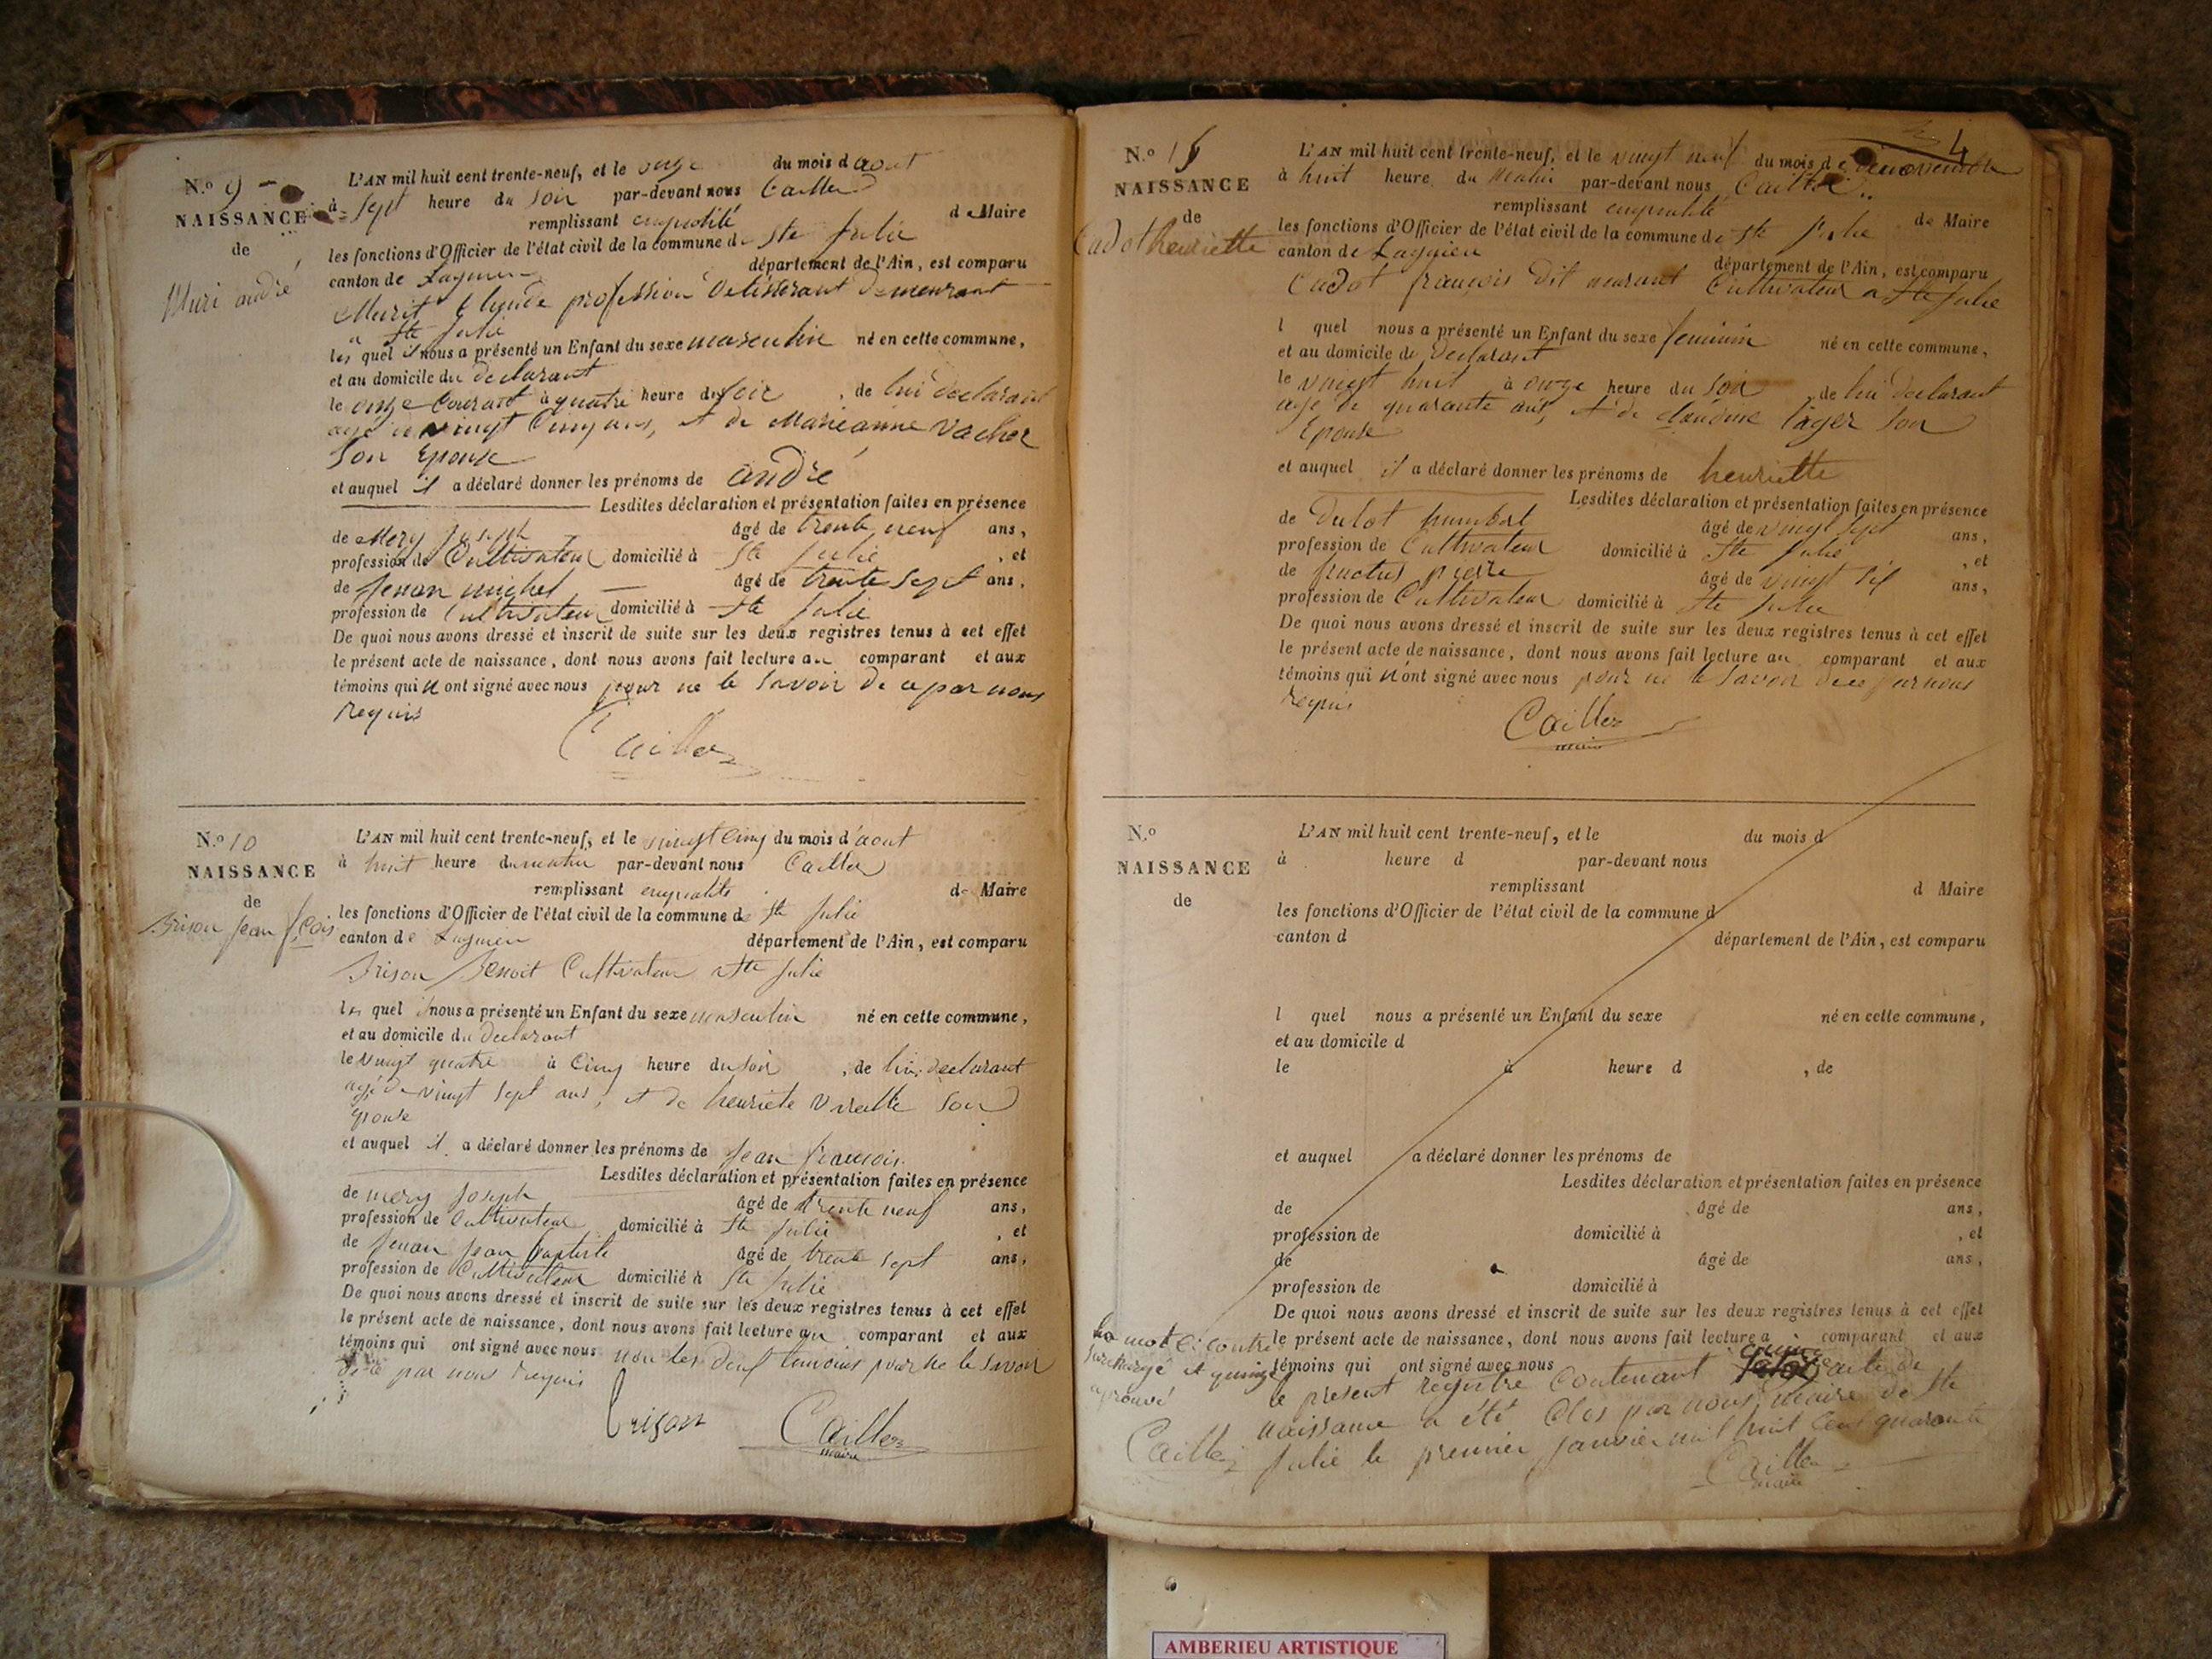 N.º 9
NAISSANCE
de
Muri andré
L'AN mil huit cent trente-neuf, et le onze du mois d aout
à sept heure du soir par-devant nous Cailler
remplissant enqualité de Maire
les fonctions d'Officier de l'état civil de la commune de Ste Julie
canton de Lagnieu département de l'Ain, est comparu
profession detisserant demeurant
a Ste Julie
lequel il nous a présenté un Enfant du sexe masculin né en cette commune,
et au domicile du declarant
le onze Courant à quatre heure du soir, de lui declarant
agé de vingt Cinq ans, et de Marieanne Vacher
son Epouse
et auquel il a déclaré donner les prénoms de andré
Lesdites déclaration et présentation faites en présence
de Mery Joseph âgé de trente neuf ans,
profession de Cultivateur domicilié à Ste Julie, et
de Jenan michel âgé de trente sept ans,
profession de Cultivateur domicilié à Ste Julie
De quoi nous avons dressé et inscrit de suite sur les deux registres tenus à cet effet
le présent acte de naissance, dont nous avons fait lecture au comparant et aux
témoins qui n ont signé avec nous pour ne le savoir de ce par nous
requis
Cailler
N.º 10
NAISSANCE
de
Brison Jean fçois
L'AN mil huit cent trente-neuf, et le vingt Cinq du mois d'aout
à huit heure du matin par-devant nous Cailler
remplissant enqualité de Maire
les fonctions d'Officier de l'état civil de la commune de Ste Julie
canton de Lagnieu département de l'Ain, est comparu
Brison Benoit Cultivateur a Ste Julie
lequel il nous a présenté un Enfant du sexe masculin né en cette commune,
et au domicile du declarant
le vingt quatre à Cinq heure du soir, de lui declarant
agé de vingt sept ans, et de henriete son
epouse
et auquel il a déclaré donner les prénoms de Jean francois
Lesdites déclaration et présentation faites en présence
de mery Joseph âgé de trente neuf ans,
profession de Cultivateur domicilié à Ste Julie, et
de Jenan Jean baptiste âgé de trente sept ans,
profession de Cultivateur domicilié à Ste Julie
De quoi nous avons dressé et inscrit de suite sur les deux registres tenus à cet effet
le présent acte de naissance, dont nous avons fait lecture au comparant et aux
témoins qui ont signé avec nous non les deux temoins pour ne le savoir
de ce par nous requis
Brison Cailler
maire
4
N.º 15
NAISSANCE
de
Cadot henriette
L'AN mil huit cent trente-neuf, et le vingt neuf du mois de
à huit heure du matin par-devant nous Cailler
remplissant enqualité de Maire
les fonctions d'Officier de l'état civil de la commune de Ste Julie
canton de Lagnieu département de l'Ain, est comparu
Cadot françois dit Cultivateur a Ste Julie
l quel nous a présenté un Enfant du sexe feminin né en cette commune,
et au domicile de declarant
le vingt huit à onze heure du soir, de lui declarant
age de quarante ans, et de claudine son
Epouse
et auquel il a déclaré donner les prénoms de henriette
Lesdites déclaration et présentation faites en présence
de humbert âgé de vingt sept ans,
profession de Cultivateur domicilié à Ste Julie, et
de fructus pierre âgé de vingt ans,
profession de Cultivateur domicilié à Ste Julie
De quoi nous avons dressé et inscrit de suite sur les deux registres tenus à cet effet
le présent acte de naissance, dont nous avons fait lecture au comparant et aux
témoins qui n'ont signé avec nous pour ne le savoir de ce par nous
requis
Cailler
maire
N.º
NAISSANCE
de
L'AN mil huit cent trente-neuf, et le du mois d
à heure d par-devant nous
remplissant d Maire
les fonctions d'Officier de l'état civil de la commune d
canton d département de l'Ain, est comparu
l quel nous a présenté un Enfant du sexe né en cette commune,
et au domicile d
le à heure d , de
et auquel a déclaré donner les prénoms de
Lesdites déclaration et présentation faites en présence
de âgé de ans,
profession de domicilié à , et
de âgé de ans,
profession de domicilié à
De quoi nous avons dressé et inscrit de suite sur les deux registres tenus à cet effet
le présent acte de naissance, dont nous avons fait lecture a comparant et aux
témoins qui ont signé avec nous
le present registre Contenant quinze acte de
naissance a été Clos par nous maire de Ste
Julie le premier janvier mil huit Cent quarante
Cailler
maire
le mot ci contre
surchargé et quinze
aprouvé
Cailler
AMBERIEU ARTISTIQUE